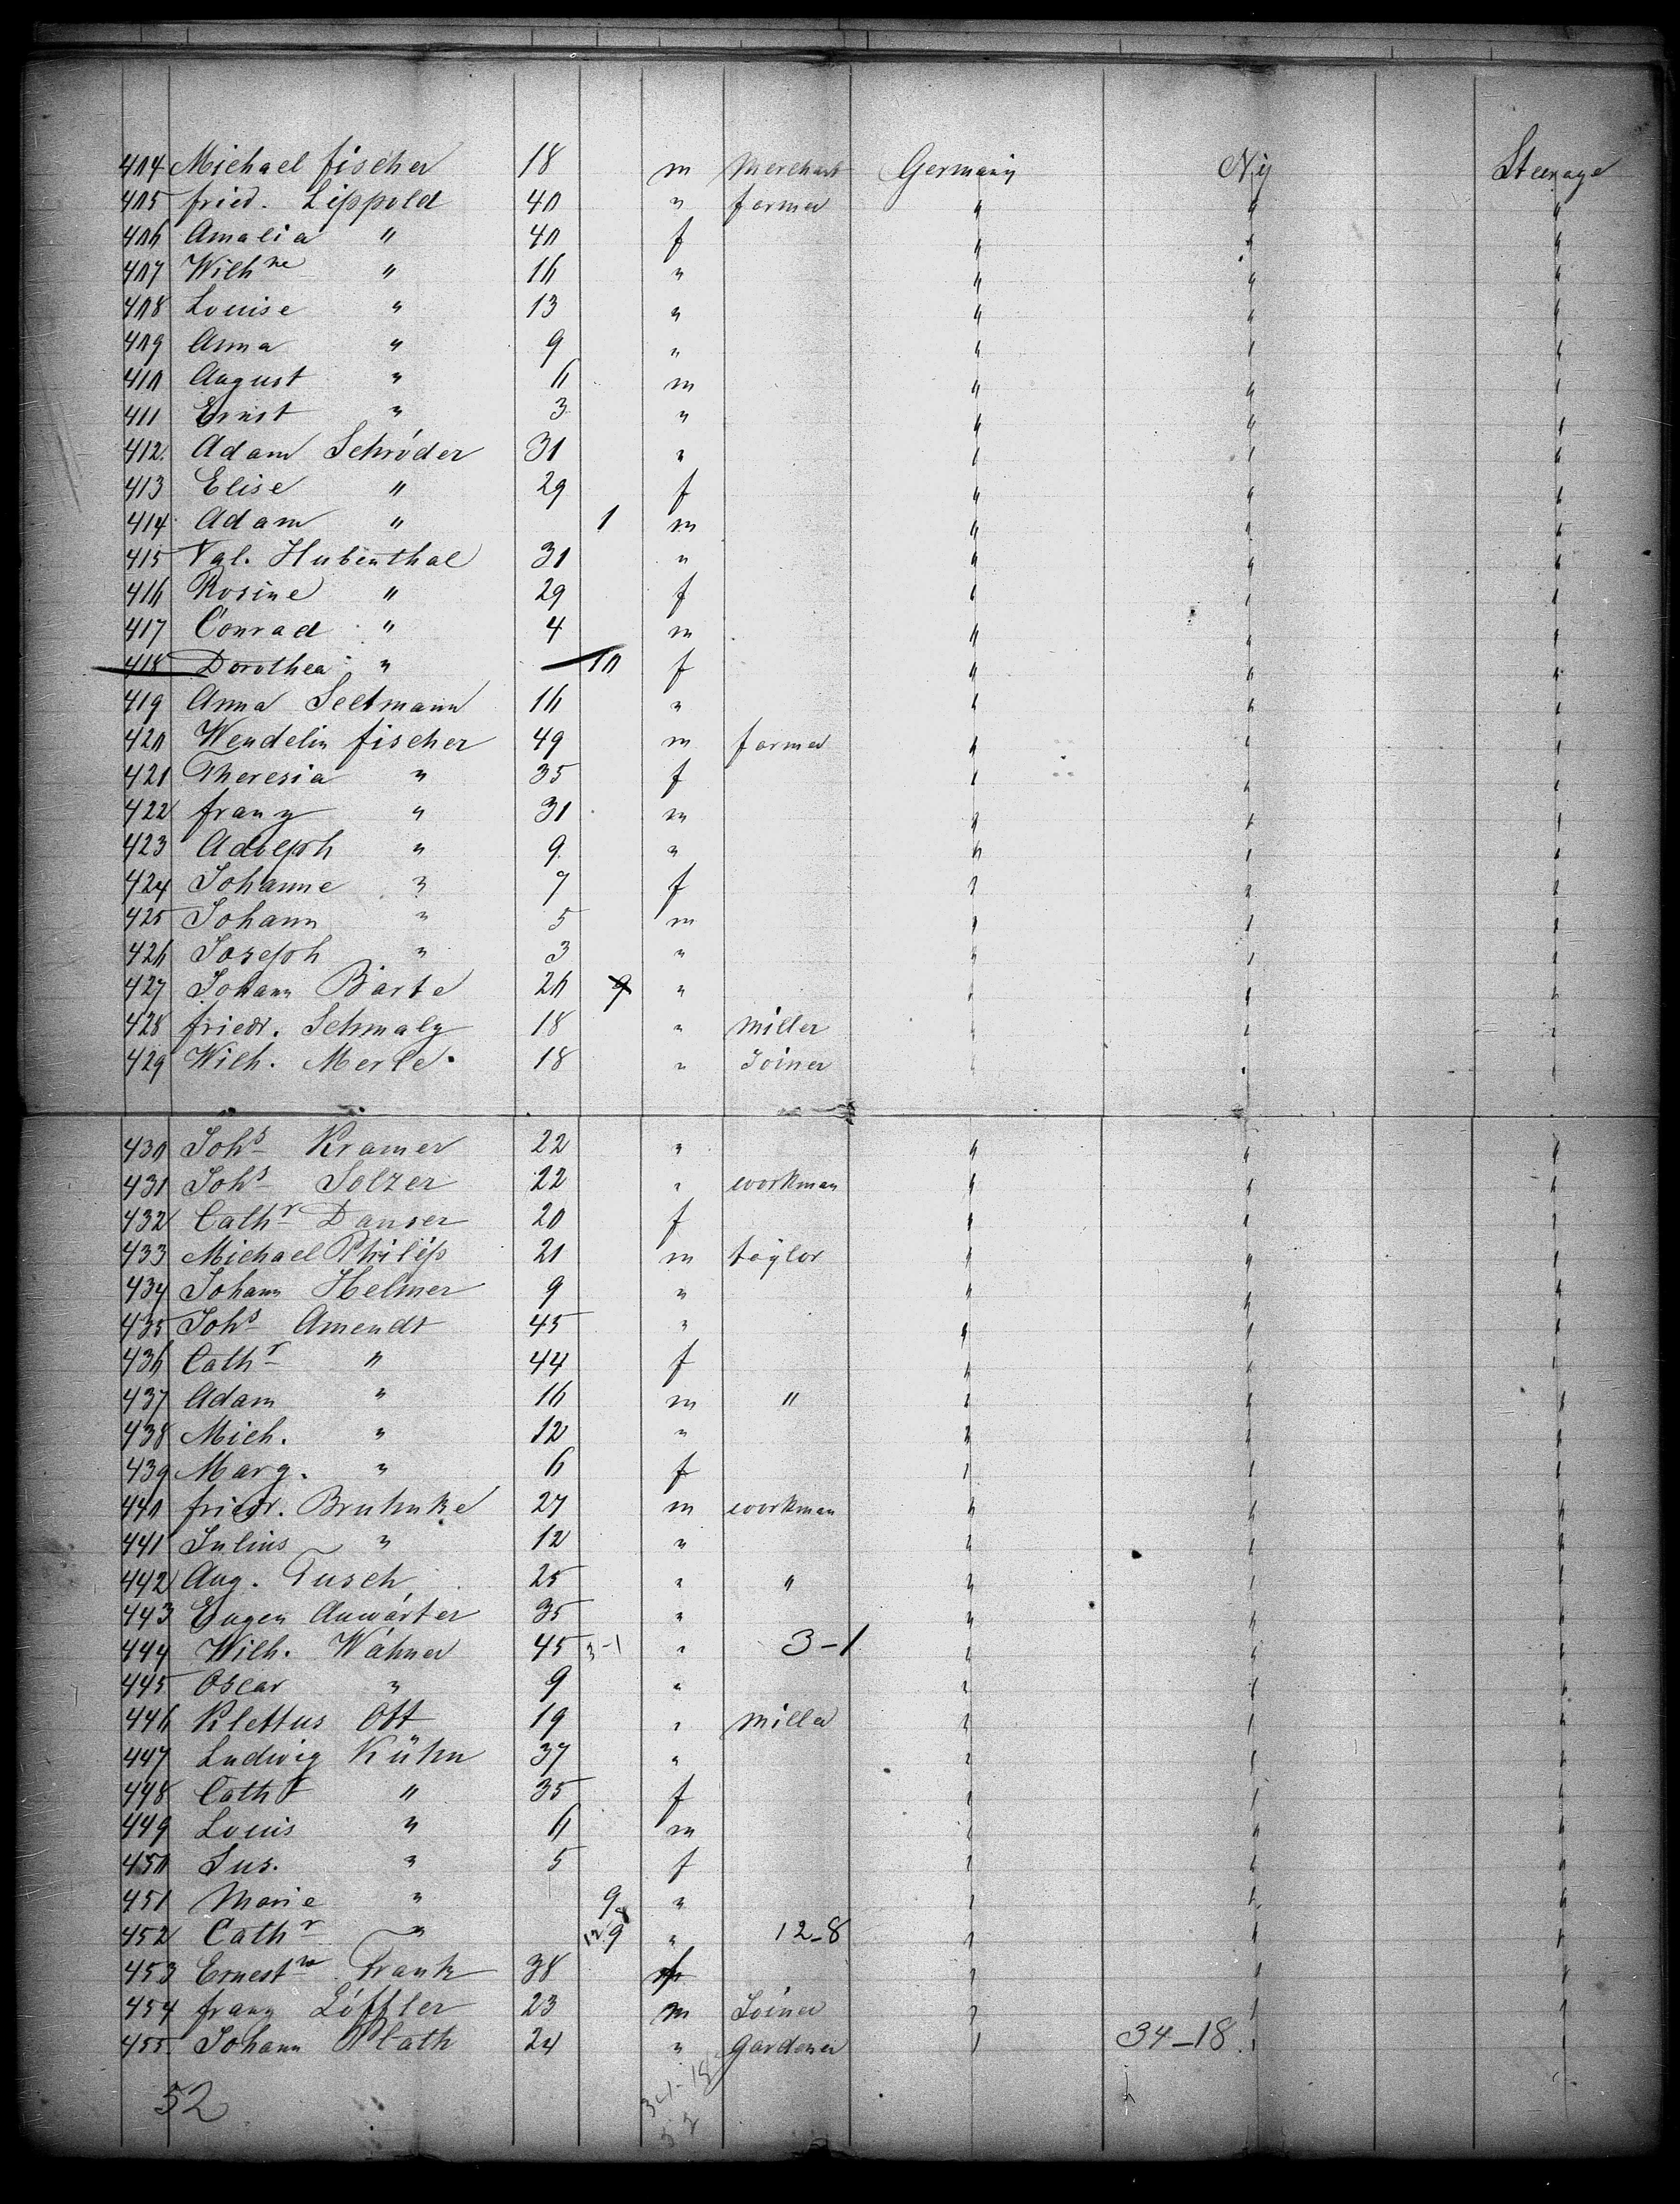 404 Michael Fischer 18 m Merchant Germany Ny Steerage
405 Fried. Lippold 40 " farmer " " "
406 Amalia " 40 f " " "
407 Wilhne " 16 " " " "
408 Louise " 13 " " " "
409 Anna " 9 " " " "
410 August " 6 m " " "
411 Ernst " 3 " " " "
412 Adam Schröder 31 " " " "
413 Elise " 29 f " " "
414 Adam " 1 m " " "
415 Val. Hubenthal 31 " " " "
416 Rosine " 29 f " " "
417 Conrad " 4 m " " "
418 Dorothea " 10 f " " "
419 Anna Seltmann 16 " " " "
420 Wendelin Fischer 49 m farmer " " "
421 Theresia " 35 f " " "
422 Franz " 31 m " " "
423 Adolph " 9 " " " "
424 Johanne " 7 f " " "
425 Johann " 5 m " " "
426 Joseph " 3 " " " "
427 Johann Barte 26 9 " " " "
428 Friedr. Schmalz 18 " Miller " " "
429 Wilh. Merle 18 " Joiner " " "
430 Johs Kramer 22 " " " "
431 Johs Solzer 22 " workman " " "
432 Cathr Danser 20 f " " "
433 Michael Philip 21 m taylor " " "
434 Johann Helmer 9 " " " "
435 Johs Amendt 45 " " " "
436 Cathr " 44 f " " "
437 Adam " 16 m " " " "
438 Mich. " 12 " " " "
439 Marg. " 6 f " " "
440 Friedr. Bruhnke 27 m workman " " "
441 Julius " 12 " " " "
442 Aug. Tusch 25 " " " " "
443 Eugen Anwärter 35 " " " "
444 Wilh. Wähner 45 3-1 " 3-1 " " "
445 Oscar " 9 " " " "
446 Klettus Ott 19 " Miller " " "
447 Ludwig Kühn 37 " " " "
448 Cathr " 35 f " " "
449 Louis " 6 m " " "
450 Sus. " 5 f " " "
451 Marie " 9 " " " "
452 Cathr " 9 12-8 " 12-8 " " "
453 Ernestne Frank 38 f " " "
454 Franz Löffler 23 m Joiner " " "
455 Johann Plath 24 " Gardener " 34-18 " "
52 34-18
52